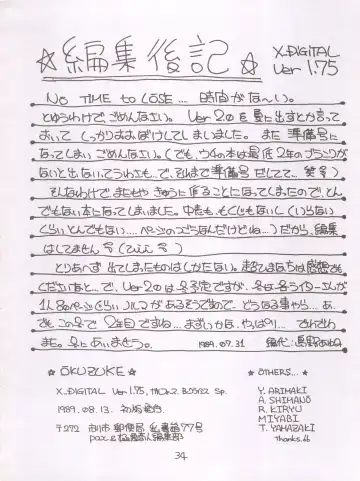 ☆編集後記☆
X.DIGITAL
Ver 1.75
NO TIME to LOSE... 時間がな〜い。
とゆうわけで ごめんなさい。 Ver 2.0 を夏に出すとか言って
おいて しっかりおおぼけしてしまいました。 また 準備号に
なってしまい ごめんなさい。(でも、ウチの本は最低2年のブランクが
ないと出ないってウワサも…で、それまで準備号 だしてて… 笑)
そんなわけで、またもや きゅうに作ることになってしまたので、とん
でもない本になってしまいました。中表も、もくじもないし(いらない
くらい とんでもない…。ページのつごうなんだけどね…) だから、編集
はしてません
とりあへず 出てしまったものはしかたない。 感想でも
くださいなっと…で、Ver 2.0 は 冬予定ですが、冬は各ライターさんが
1人80ページくらい ノルマがあるそうですので… どうなる事やら… あ、
でも この号で 2年目ですね… まずいかな、やっぱり…
また。冬にあいませう。 1989.07.31
☆ OKUZUKE ☆
X.DIGITAL Ver 1.75,
1989.08.13. 初版発行
〒272 市川市 郵便局 私書箱 77号
編集部
☆ OTHERS... ☆
Y. ARIMAKI
A. SHIMANO
R. KIRYU
MIYABI
T. YAMAZAKI
thanks.
34